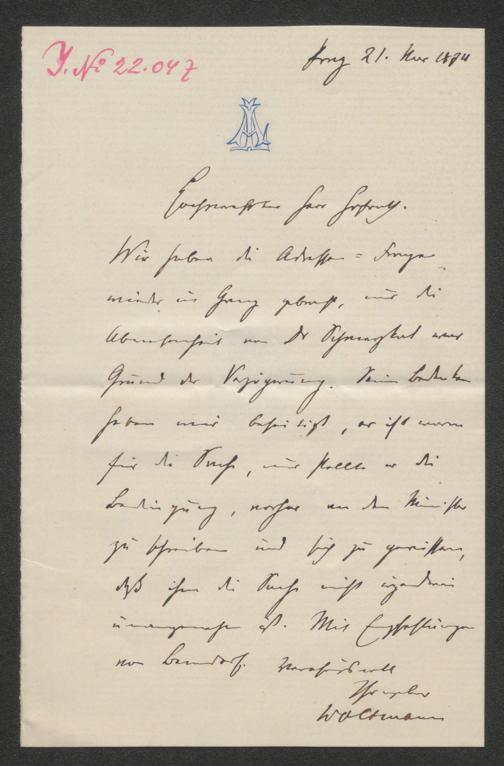 J. No 22.047
Prag 21. Mar 1874
AL
Hochverehrter Herr Hofrath.
Wir haben die Adressen = Frage
wieder in Gang gebracht, nur die
Abwesenheit von Dr Schmeykal war
Grund der Verzögerung. Seine Bedenken
haben wir beseitigt, er ist warm
für die Sache, nur stellte er die
Bedingung, vorher an den Minister
zu schreiben und sich zu vergewissern,
daß ihm die Sache nicht irgendwie
unangenehm ist. Mit Empfehlungen
von Benndorf. Verehrungsvoll
Ihr ergebener
Woltmann